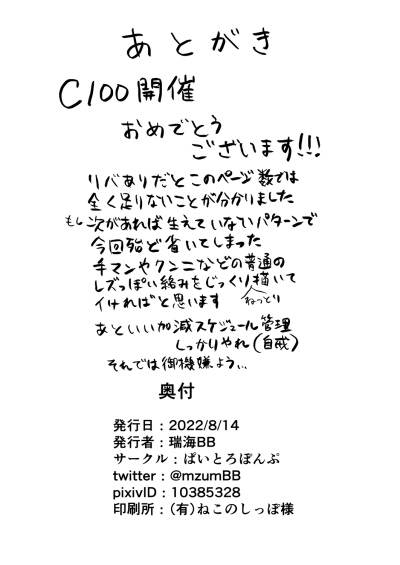 あとがき
C100開催
おめでとう
ございます!!!
リバありだとこのページ数では
全く足りないことが分かりました
もし次があれば生えていないパターンで
今回殆ど省いてしまった
手マンやクンニなどの普通の
レズっぽい絡みをじっくり描いて
ねっとり
イければと思います
あといい加減スケジュール管理
しっかりやれ(自戒)
それでは御機嫌よう…
奥付
発行日:2022/8/14
発行者:瑞海BB
サークル:ぱいとろぽんぷ
twitter:@mzumBB
pixivID:10385328
印刷所:(有)ねこのしっぽ様